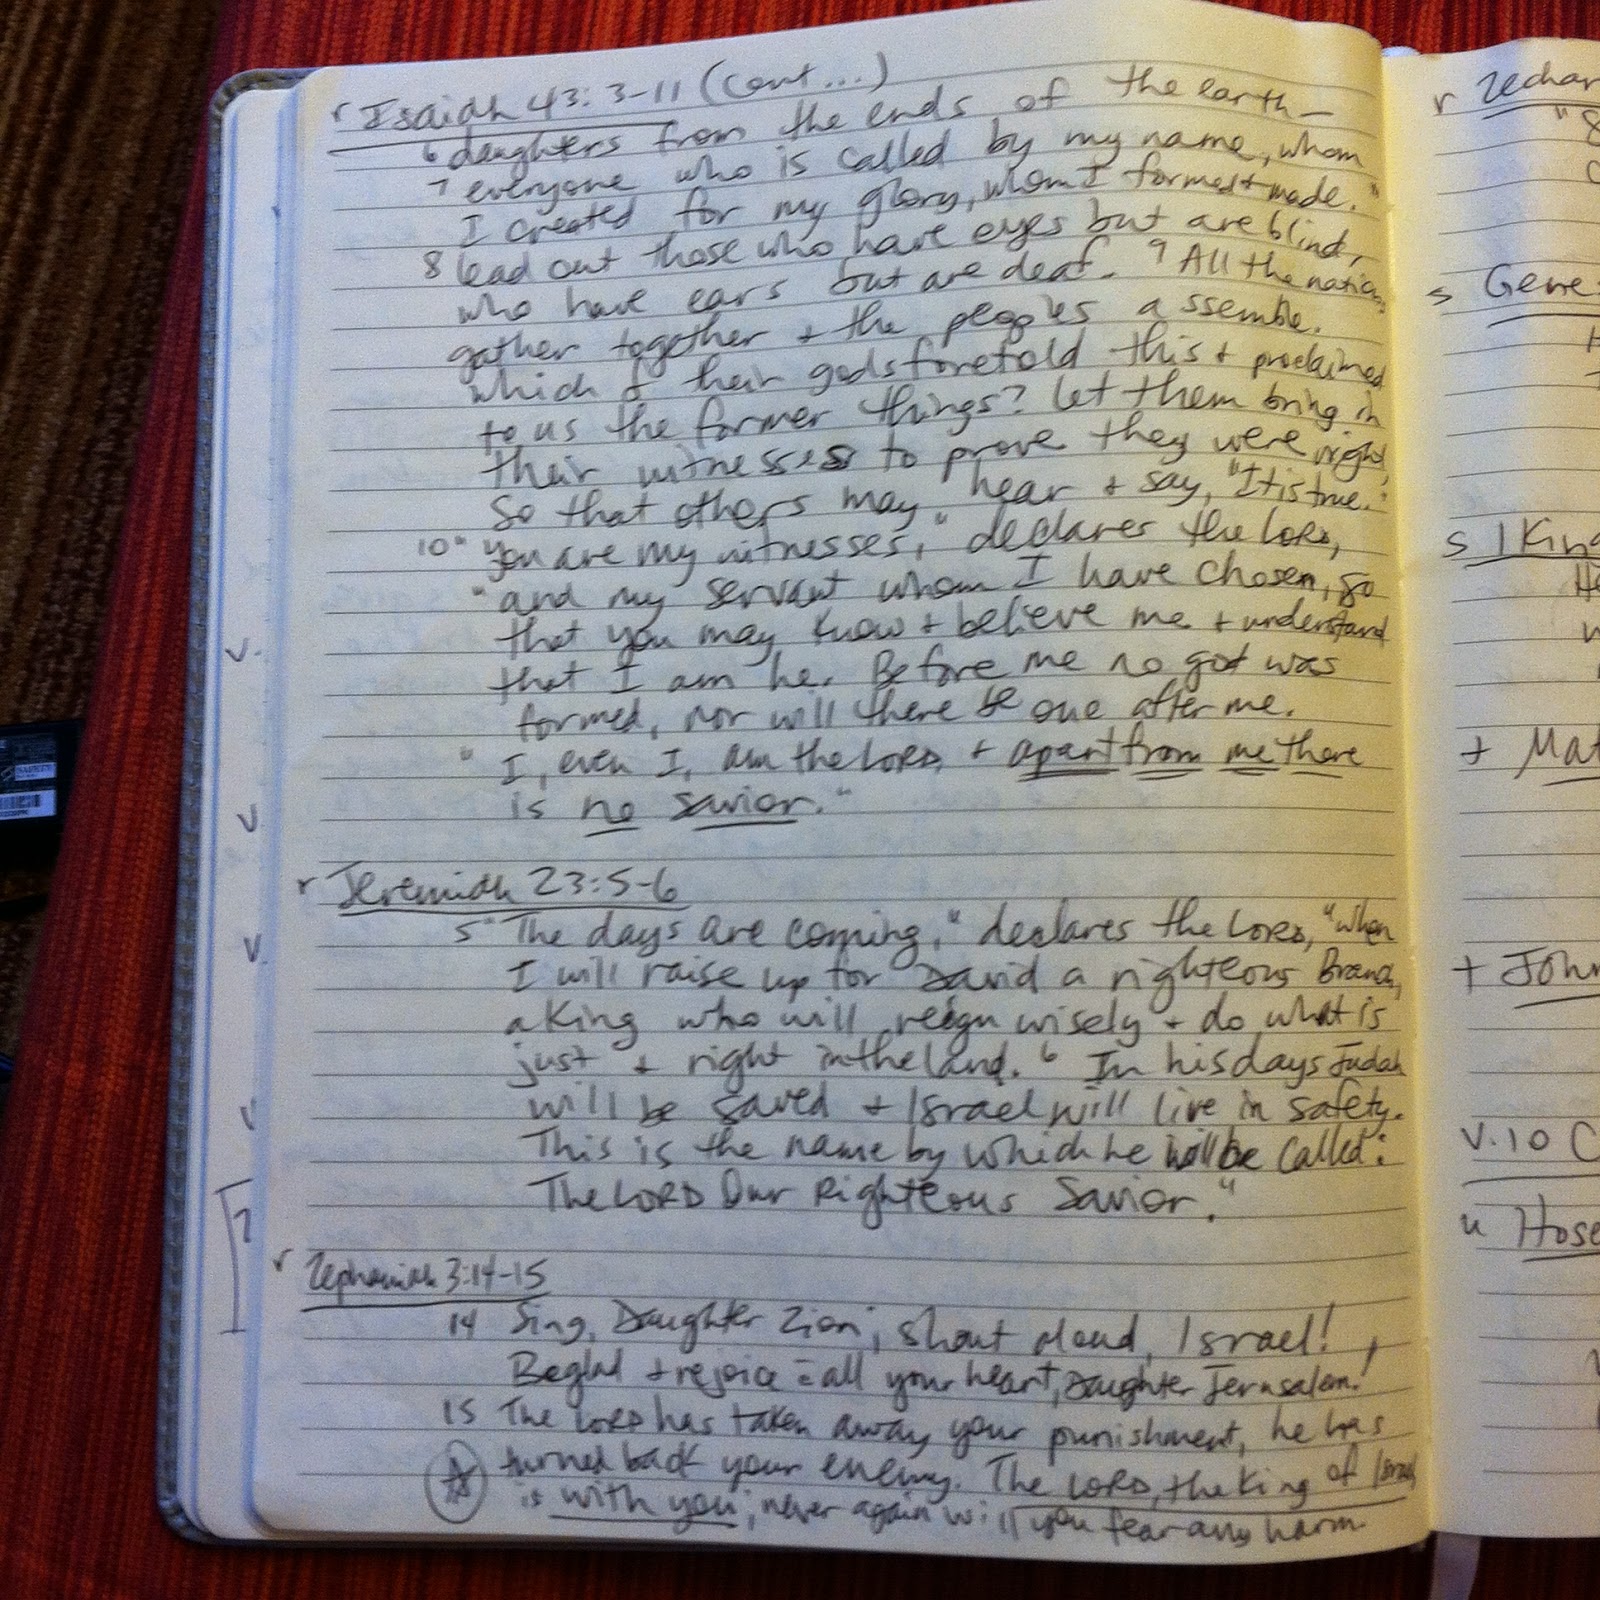 r Isaiah 43:3-11 (cont...)
6 daughters from the ends of the earth-
7 everyone who is called by my name, whom
I created for my glory, whom I formed + made."
8 Lead out those who have eyes but are blind,
who have ears but are deaf. 9 All the nations
gather together + the peoples assemble.
which of their gods foretold this + proclaimed
to us the former things? Let them bring in
their witnesses to prove they were right,
So that others may hear + say, "It is true."
10 "You are my witnesses," declares the LORD,
"and my servant whom I have chosen, so
that you may know + believe me + understand
that I am he. Before me no god was
formed, nor will there be one after me.
" I, even I, am the LORD, + apart from me there
is no savior."
r Jeremiah 23:5-6
5 "The days are coming," declares the LORD, "when
I will raise up for David a righteous Branch,
a King who will reign wisely + do what is
just + right in the land. 6 In his days Judah
will be saved + Israel will live in safety.
This is the name by which he will be called:
The LORD Our Righteous Savior."
r Zephaniah 3:14-15
14 Sing, Daughter Zion; shout aloud, Israel!
Be glad + rejoice = all your heart, Daughter Jerusalem!
15 The LORD has taken away your punishment, he has
turned back your enemy. The LORD, the King of Israel,
is with you; never again will you fear any harm
v.
v
v.
v
?
r Zechar
"8
s Gene
s 1 King
He
w
+ Mat
+ John
v.10 C
u Hose